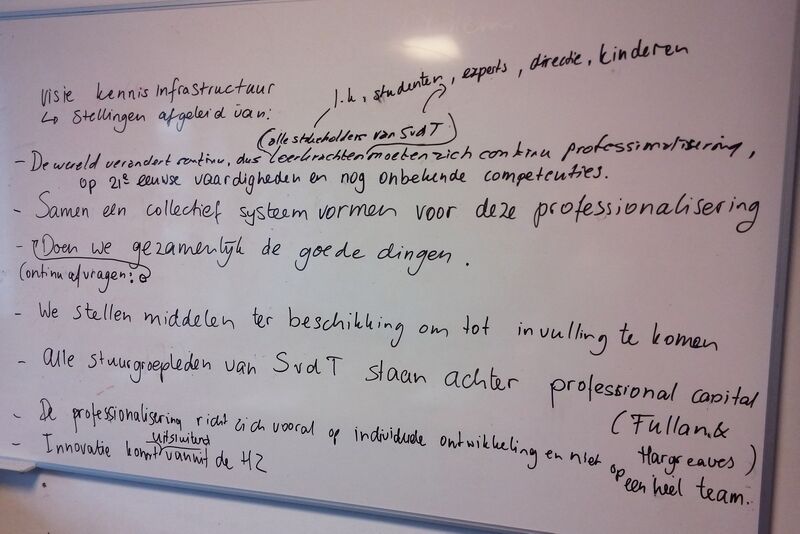 Visie kennisinfrastructuur
↳ Stellingen afgeleid van:
l.k, studenten, experts, directie, kinderen
(alle stakeholders van SvdT)
- De wereld verandert continu, dus leerkrachten moeten zich continu professionalisering,
op 21e eeuwse vaardigheden en nog onbekende competenties.
- Samen een collectief systeem vormen voor deze professionalisering
- Doen we gezamenlijk de goede dingen.
Continu afvragen:
- We stellen middelen ter beschikking om tot invulling te komen
- Alle stuurgroepleden van SvdT staan achter professional capital
(Fullan &
Hargreaves)
- De professionalisering richt zich vooral op individuele ontwikkeling en niet op
een heel team.
uitsluitend
- Innovatie komt vanuit de HZ